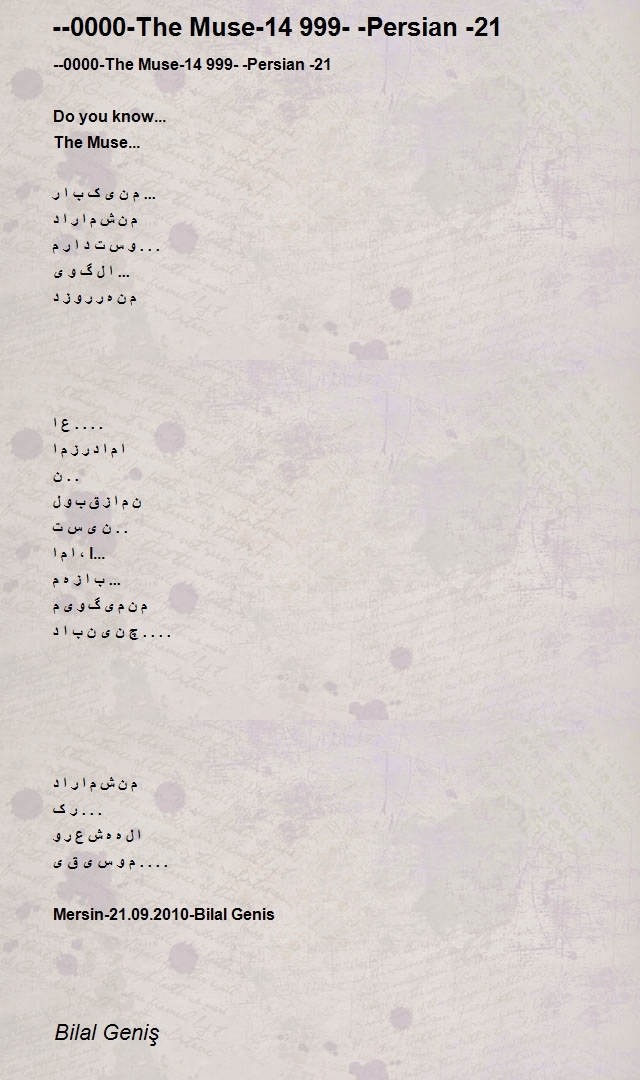 --0000-The Muse-14 999- -Persian -21
--0000-The Muse-14 999- -Persian -21
Do you know...
The Muse...
م ن ی ک ب ا ر ...
م ن ش م ا ر ا د
و س ت د ا ر م . . .
ا ل گ و ی ...
م ن ه ر ر و ز د
ع ا . . . .
ا م ا د ر ز م ا
ن . .
ن م ا ز ق ب و ل
ن ی س ت . .
ا م ا ، I...
ب ا ز ه م ...
م ن م ی گ و ی م
چ ن ی ن ب ا د . . . .
م ن ش م ا ر ا د
ر ک . . .
ا ل ه ه ش ع ر و
م و س ی ق ی . . . .
Mersin-21.09.2010-Bilal Genis
Bilal Geniş